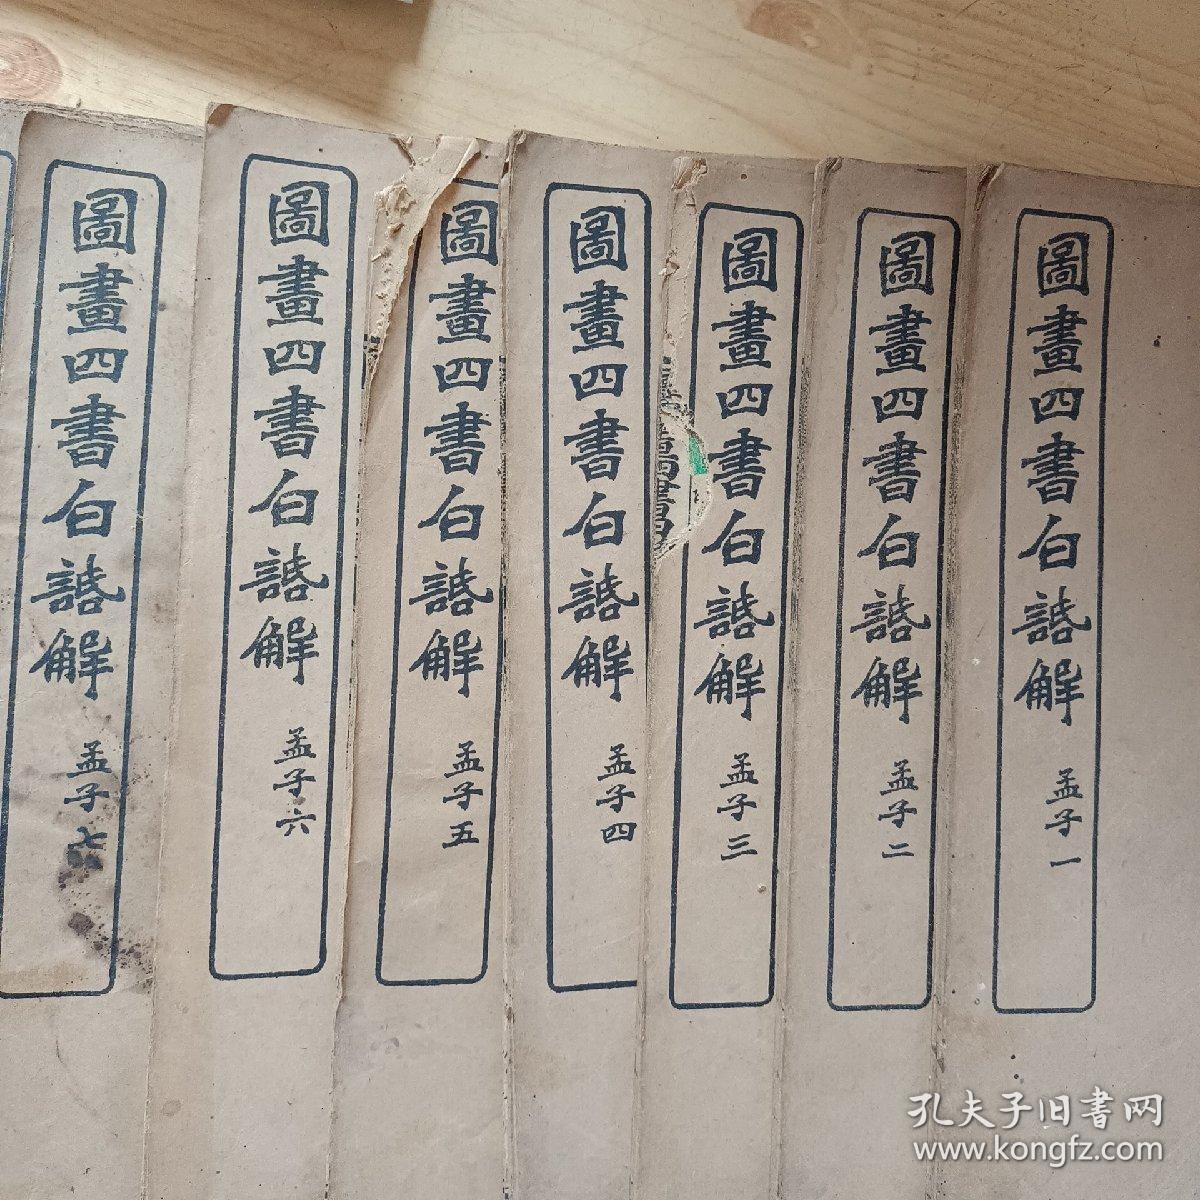 圖畫四書白話解 孟子一
圖畫四書白話解 孟子二
圖畫四書白話解 孟子三
圖畫四書白話解 孟子四
圖畫四書白話解 孟子五
圖畫四書白話解 孟子六
圖畫四書白話解 孟子七
孔夫子旧書网
www.kongfz.com